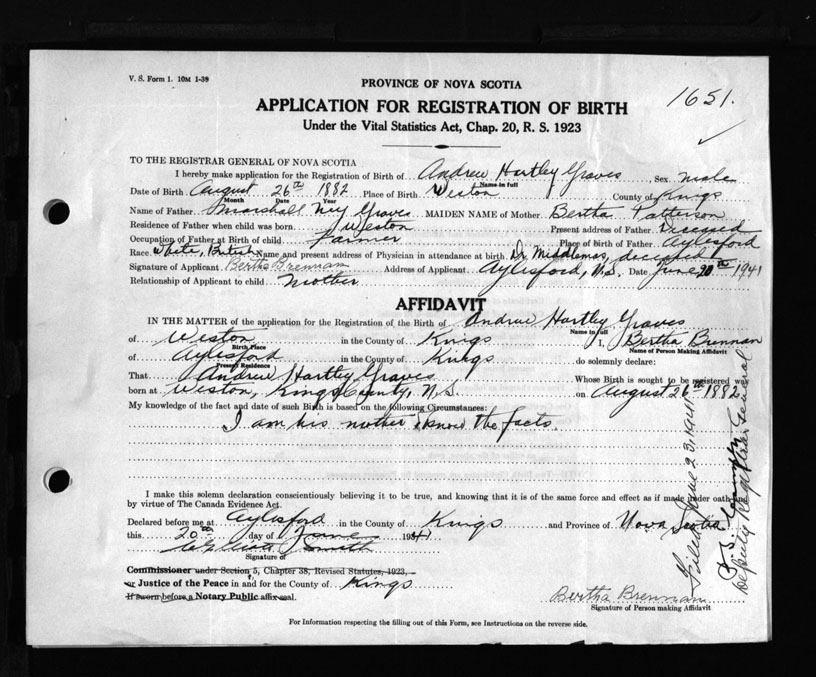 V. S. Form 1. 10M 1-39
PROVINCE OF NOVA SCOTIA
1651.
APPLICATION FOR REGISTRATION OF BIRTH
Under the Vital Statistics Act, Chap. 20, R. S. 1923
TO THE REGISTRAR GENERAL OF NOVA SCOTIA
I hereby make application for the Registration of Birth of Andrew Hartley Graves, Sex male
Name in full
Date of Birth August 26th 1882 Place of Birth Weston County of Kings
Month Date Year
Name of Father Marshall Ney Graves MAIDEN NAME of Mother Bertha Patterson
Residence of Father when child was born Weston Present address of Father Deceased
Occupation of Father at Birth of child Farmer Place of birth of Father Aylesford
Race White, British Name and present address of Physician in attendance at birth Dr. Middlemas, deceased
Signature of Applicant Bertha Brennan Address of Applicant Aylesford, N.S. Date June 20th 1941
Relationship of Applicant to child Mother
AFFIDAVIT
IN THE MATTER of the application for the Registration of the Birth of Andrew Hartley Graves
Name in full
of Weston in the County of Kings I, Bertha Brennan
Birth Place Name of Person Making Affidavit
of Aylesford in the County of Kings do solemnly declare:
Present Residence
That Andrew Hartley Graves Whose Birth is sought to be registered was
born at Weston, Kings County, N.S. on August 26th 1882
My knowledge of the fact and date of such Birth is based on the following Circumstances:
I am his mother & know the facts.
I make this solemn declaration conscientiously believing it to be true, and knowing that it is of the same force and effect as if made under oath and
by virtue of The Canada Evidence Act.
Declared before me at Aylesford in the County of Kings and Province of Nova Scotia
this 20th day of June 1941
Smith
Signature of
Commissioner under Section 5, Chapter 38, Revised Statutes, 1923,
or Justice of the Peace in and for the County of Kings
If sworn before a Notary Public affix seal.
Bertha Brennan
Signature of Person making Affidavit
For Information respecting the filling out of this Form, see Instructions on the reverse side.
Filed June 23, 1941
Deputy Registrar General